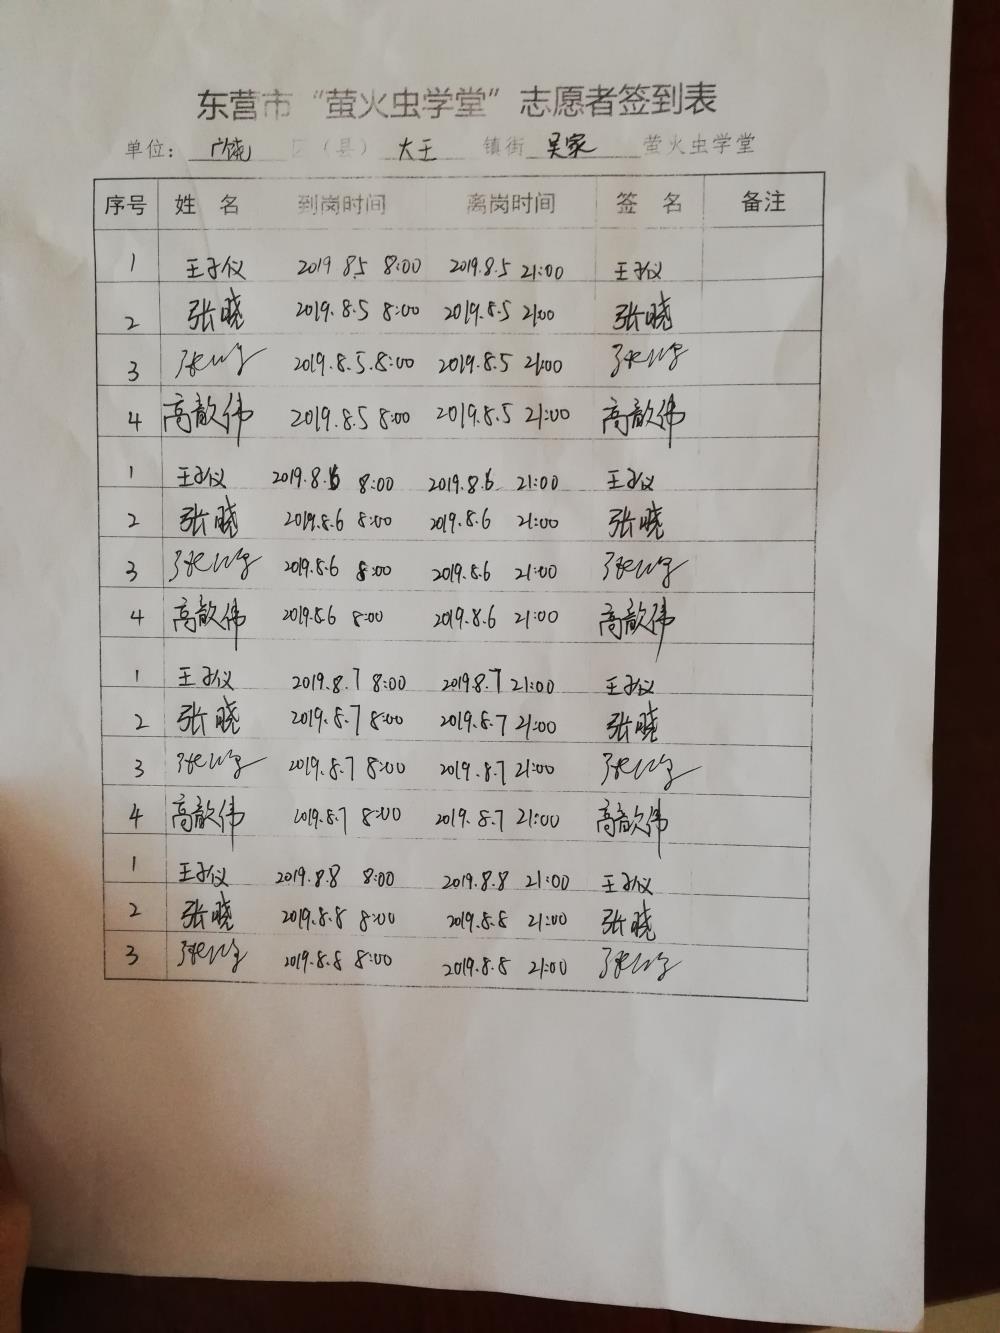 东营市“萤火虫学堂”志愿者签到表
单位：广饶 区（县） 大王 镇街 吴家 萤火虫学堂
序号 姓 名 到岗时间 离岗时间 签 名 备注
1 王子仪 2019 8.5 8:00 2019.8.5 21:00 王子仪
2 张晓 2019.8.5 8:00 2019.8.5 21:00 张晓
3 张 2019.8.5.8:00 2019.8.5 21:00 张
4 高歆伟 2019.8.5 8:00 2019.8.5 21:00 高歆伟
1 王子仪 2019.8.6 8:00 2019.8.6 21:00 王子仪
2 张晓 2019.8.6 8:00 2019.8.6 21:00 张晓
3 张 2019.8.6 8:00 2019.8.6 21:00 张
4 高歆伟 2019.8.6 8:00 2019.8.6 21:00 高歆伟
1 王子仪 2019.8.7 8:00 2019.8.7 21:00 王子仪
2 张晓 2019.8.7 8:00 2019.8.7 21:00 张晓
3 张 2019.8.7 8:00 2019.8.7 21:00 张
4 高歆伟 2019.8.7 8:00 2019.8.7 21:00 高歆伟
1 王子仪 2019.8.8 8:00 2019.8.8 21:00 王子仪
2 张晓 2019.8.8 8:00 2019.8.8 21:00 张晓
3 张 2019.8.8 8:00 2019.8.8 21:00 张